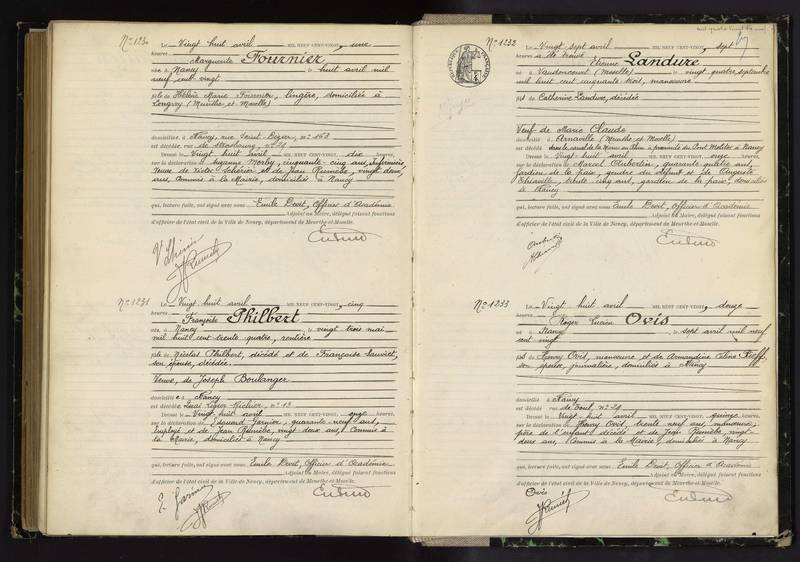 No 1230
Le Vingt huit avril MIL NEUF CENT-VINGT, une
heures, Marguerite Fournier
née à Nancy le huit avril mil
neuf cent vingt
fille de Hélène Marie Fournier, lingère, domiciliée à
Longwy (Meurthe et Moselle)
domiciliée à Nancy, rue Saint-Dizier, no 153
est décédée rue de Strasbourg, no 29
Dressé le Vingt huit avril MIL NEUF CENT-VINGT, dix heures,
sur la déclaration de Suzanne Morby, cinquante cinq ans, infirmière
Veuve de Victor et de Jean Remède, vingt deux
ans, Commis à la Mairie, domiciliés à Nancy
qui, lecture faite, ont signé avec nous Emile Devit, Officier d'Académie
Adjoint au Maire, délégué faisant fonctions
d'officier de l'état civil de la Ville de Nancy, département de Meurthe-et-Moselle.
No 1231
Le Vingt huit avril MIL NEUF CENT-VINGT, cinq
heures, Françoise Philbert
née à Nancy le vingt trois mai
mil huit cent trente quatre, rentière
fille de Nicolas Philbert, décédé et de Françoise Sauvret,
son épouse, décédée.
Veuve, de Joseph Boulanger
domiciliée à Nancy
est décédée Quai Ligier Richier, no 13
Dressé le Vingt huit avril MIL NEUF CENT-VINGT, onze heures,
sur la déclaration de Edouard Farinier, quarante neuf ans,
employé et de Jean Remède, vingt deux ans, Commis à
la Mairie, domiciliés à Nancy
qui, lecture faite, ont signé avec nous Emile Devit, Officier d'Académie
Adjoint au Maire, délégué faisant fonctions
d'officier de l'état civil de la Ville de Nancy, département de Meurthe-et-Moselle.
No 1232
Le Vingt sept avril MIL NEUF CENT-VINGT, sept
heures a été trouvé Etienne Landure
né à Vaudoncourt (Moselle) le vingt quatre septembre
mil huit cent cinquante trois, manoeuvre
fils de Catherine Landure, décédée
Veuf de Marie Claude
domicilié à Arnaville (Meurthe et Moselle)
Dressé le Vingt huit avril MIL NEUF CENT-VINGT, onze heures,
sur la déclaration de Marcel Aubertin, quarante quatre ans,
gardien de la paix, gendre du défunt et de Auguste
trente cinq ans, gardien de la paix, domiciliés
à Nancy
qui, lecture faite, ont signé avec nous Emile Devit, Officier d'Académie
Adjoint au Maire, délégué faisant fonctions
d'officier de l'état civil de la Ville de Nancy, département de Meurthe-et-Moselle.
No 1233
Le Vingt huit avril MIL NEUF CENT-VINGT, douze
heures Roger Lucien Ovis
né à Nancy le sept avril mil neuf
cent vingt
fils de Henry Ovis, manoeuvre et de Armandine Céline Kieff
son épouse, journalière, domiciliés à Nancy
domicilié à Nancy
est décédé rue de Toul, no 29
Dressé le Vingt huit avril MIL NEUF CENT-VINGT, quinze heures,
sur la déclaration de Henry Ovis, trente neuf ans, manoeuvre,
père de l'enfant décédé et de Jean Remède, vingt
deux ans, Commis à la Mairie, domiciliés à Nancy
qui, lecture faite, ont signé avec nous Emile Devit, Officier d'Académie
Adjoint au Maire, délégué faisant fonctions
d'officier de l'état civil de la Ville de Nancy, département de Meurthe-et-Moselle.
Ovis